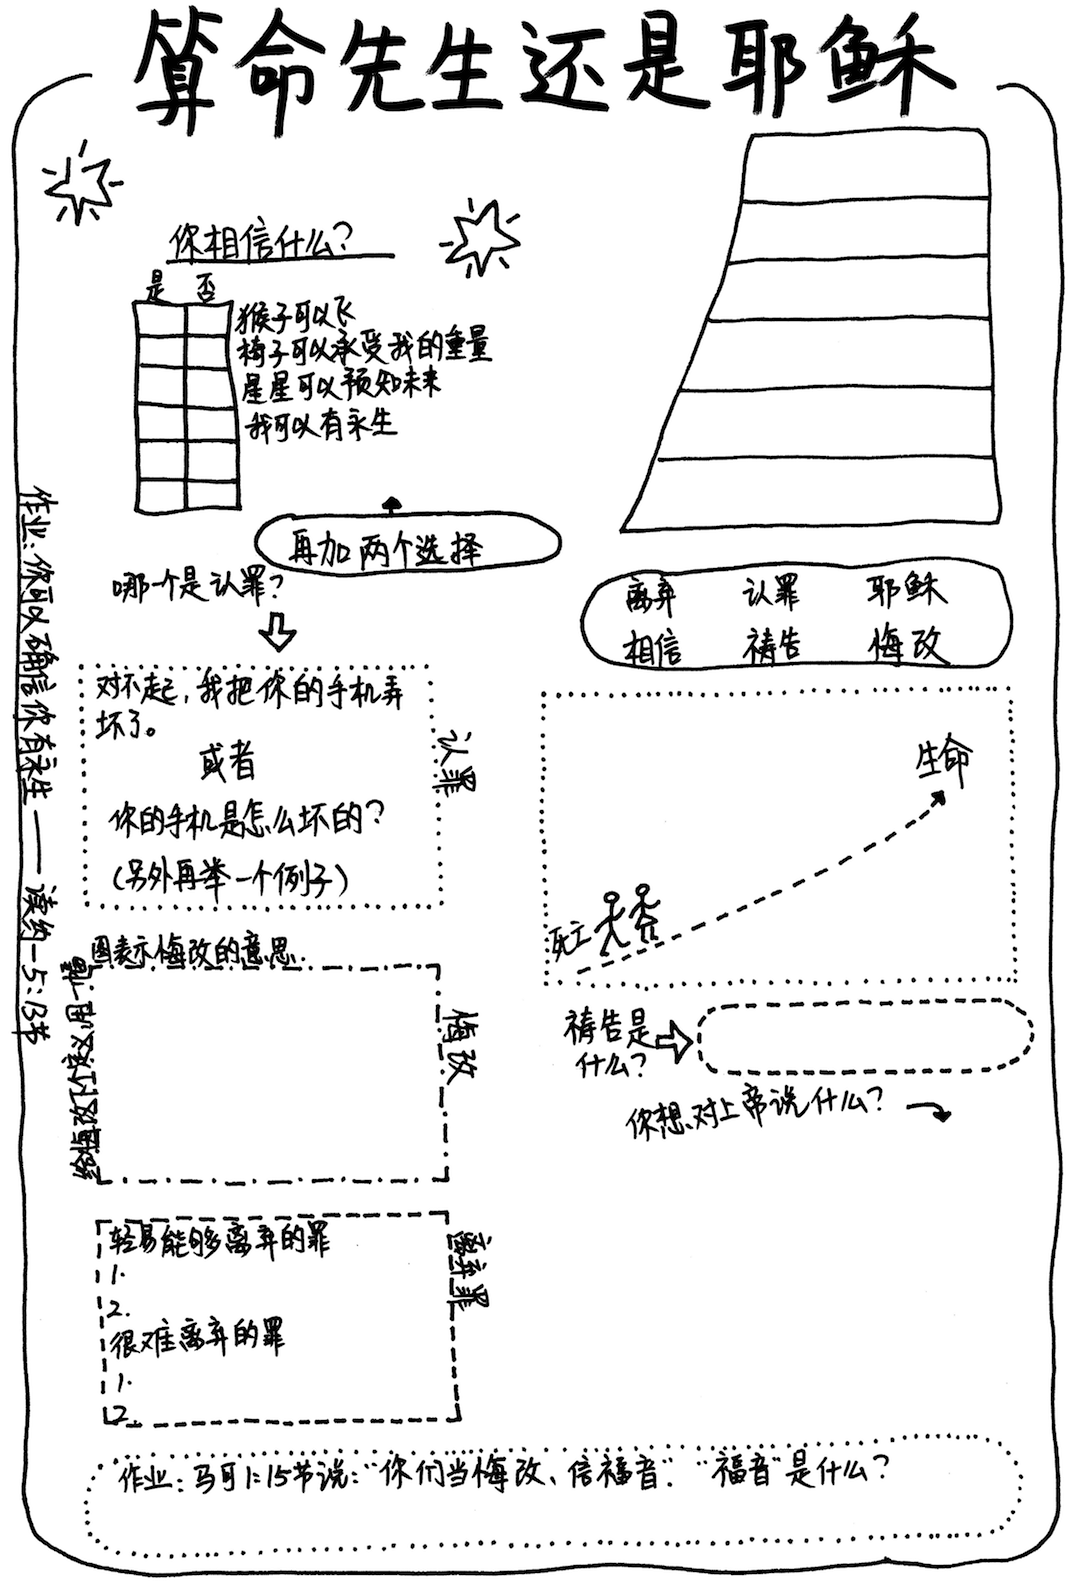 算命先生还是耶稣
你相信什么?
是 否
猴子可以飞
椅子可以承受我的重量
星星可以预知未来
我可以有永生
再加两个选择
哪一个是认罪?
对不起,我把你的手机弄
坏了。
或者
你的手机是怎么坏的?
(另外再举一个例子)
认罪
给悔改下个定义,用一幅
图表示悔改的意思.
悔改
轻易能够离弃的罪
1.
2.
很难离弃的罪
1.
2.
离弃罪
离弃 认罪 耶稣
相信 祷告 悔改
生命
死亡
祷告是
什么?
你想对上帝说什么?
作业:你可以确信你有永生——读约一5:13节
作业:马可1:15节说:“你们当悔改、信福音”.“福音”是什么?